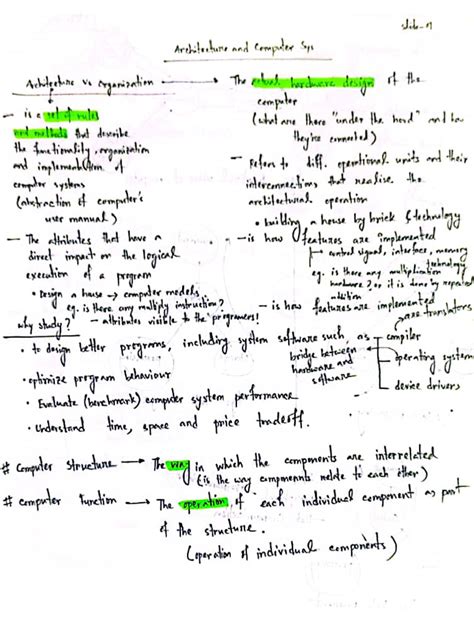 slide-01
Architecture and Computer Sys
Architecture vs Organization → The actual hardware design of the
computer
(what are there "under the hood" and how
they're connected)
– is a set of rules
and methods that describe
the functionality, organization
and implementation of
computer systems
(abstraction of computer's
user manual)
– Refers to diff. operational units and their
interconnections that realise the
architectural operation
• building a house by brick & technology
– is how features are implemented
control signals, interface, memory
technology
eg. is there any multiplication
hardware? or it is done by repeated
addition
– The attributes that have a
direct impact on the logical
execution of a program
• Design a house → computer models
eg. is there any multiply instruction?
– attributes visible to the programers!
– is how features are implemented
why study?
• to design better programs, including system software such as
compiler
are translators
operating system
device drivers
bridge between
hardware and
software
• optimize program behaviour
• Evaluate (benchmark) computer system performance
• Understand time, space and price tradeoff.
# Computer Structure → The way in which the components are interrelated
(is the way components relate to each other)
# Computer Function → The operation of each individual component as part
of the structure.
(operation of individual components)